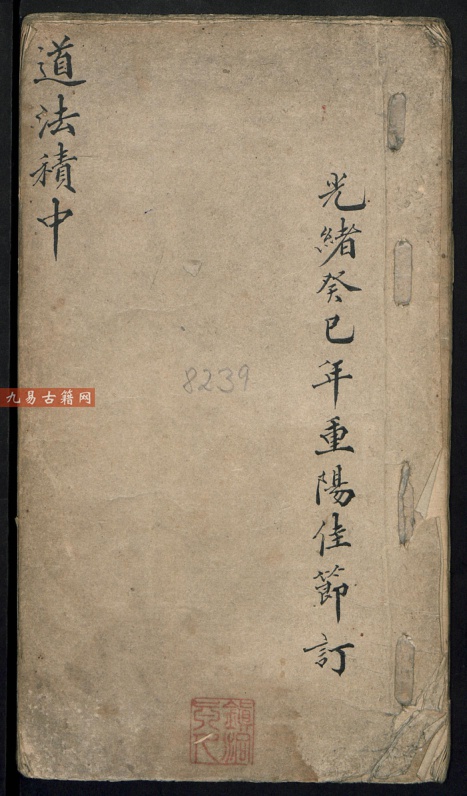 光緒癸巳年重陽佳節訂
道法積中
8239
九易古籍网